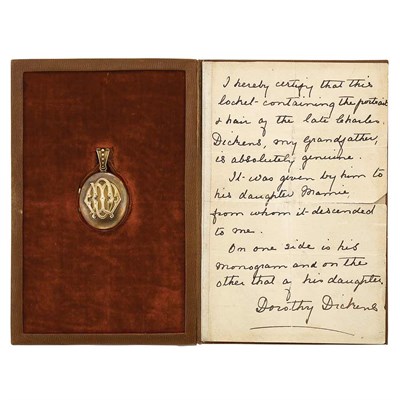 I hereby certify that this
locket containing the portrait
& hair of the late Charles
Dickens, my grandfather,
is absolutely genuine.
It was given by him to
his daughter Mamie,
from whom it descended
to me.
On one side is his
monogram and on the
other that of his daughter.
Dorothy Dickens